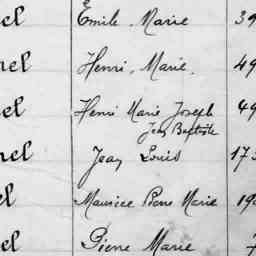 el Emile Marie 39
nel Henri, Marie. 49
el Henri Marie Joseph 49
Jean Baptiste
nel Jean Louis 173
el Maurice Pierre Marie 19
el Pierre Marie 7